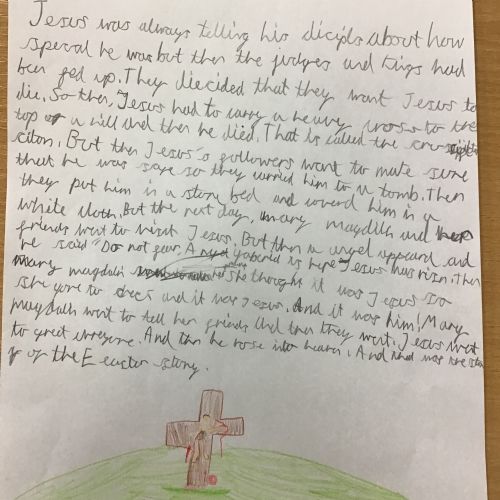 Jesus was always telling his diciples about how
special he was but then the judges and kings had
been fed up. They diecided that they want Jesus to
die. So then Jesus had to carry a heavy cross to the
top of a hill and then he died. That is called the
citon. But then Jesus's followers want to make sure
that he was safe so they carried him to a tomb. Then
they put him in a stone bed and coverd him in a
white cloth. But the next day, mary magdilh and her
friends went to visit Jesus. But then a angel appeard and
he said "Do not fear. A is here Jesus has risn. Then
mary magdalh she thought it was Jesus so
she gone to and it was Jesus. And it was him! Mary
magdalh went to tell her friends and then they went. Jesus went
to greet evreyone. And then he rose into heaven. And that was the
of the Eeaster story.